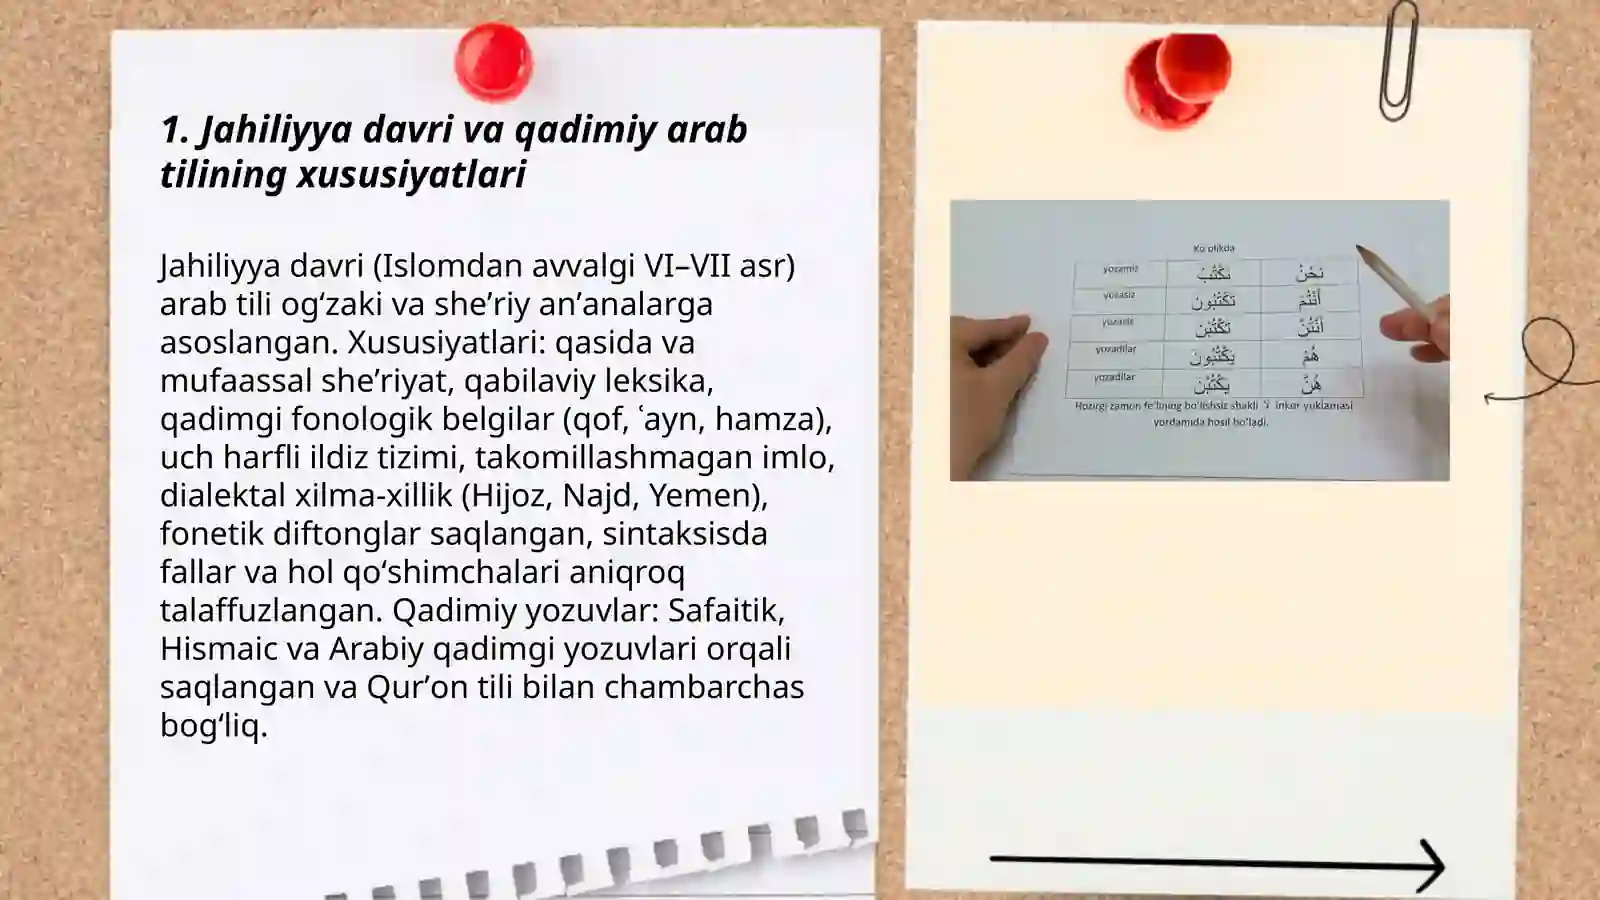 1. Jahiliyya davri va qadimiy arab
tilining xususiyatlari
Jahiliyya davri (Islomdan avvalgi VI–VII asr)
arab tili og‘zaki va she’riy an’analarga
asoslangan. Xususiyatlari: qasida va
mufaassal she’riyat, qabilaviy leksika,
qadimgi fonologik belgilar (qof, ʿayn, hamza),
uch harfli ildiz tizimi, takomillashmagan imlo,
dialektal xilma-xillik (Hijoz, Najd, Yemen),
fonetik diftonglar saqlangan, sintaksisda
fallar va hol qo‘shimchalari aniqroq
talaffuzlangan. Qadimiy yozuvlar: Safaitik,
Hismaic va Arabiy qadimgi yozuvlari orqali
saqlangan va Qur’on tili bilan chambarchas
bog‘liq.
Ko'plikda
yozamiz نَكْتُبُ نَحْنُ
yozasiz تَكْتُبُونَ أَنْتُمْ
yozasiz تَكْتُبْنَ أَنْتُنَّ
yozadilar يَكْتُبُونَ هُمْ
yozadilar يَكْتُبْنَ هُنَّ
Hozirgi zamon fe'lining bo'lishsiz shakli لا inkor yuklamasi
yordamida hosil bo'ladi.